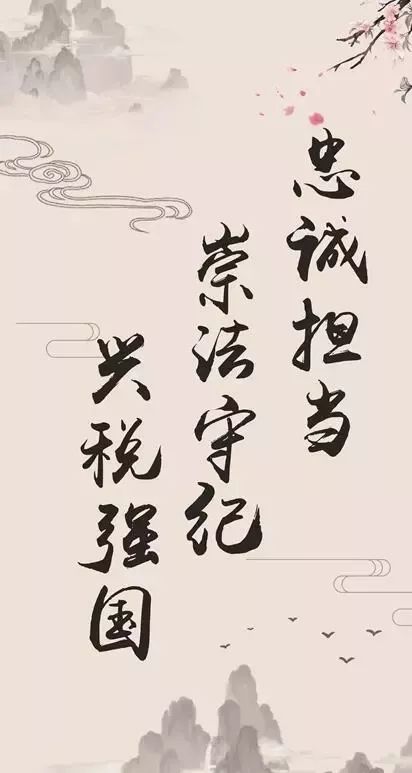 忠诚担当
崇法守纪
兴税强国